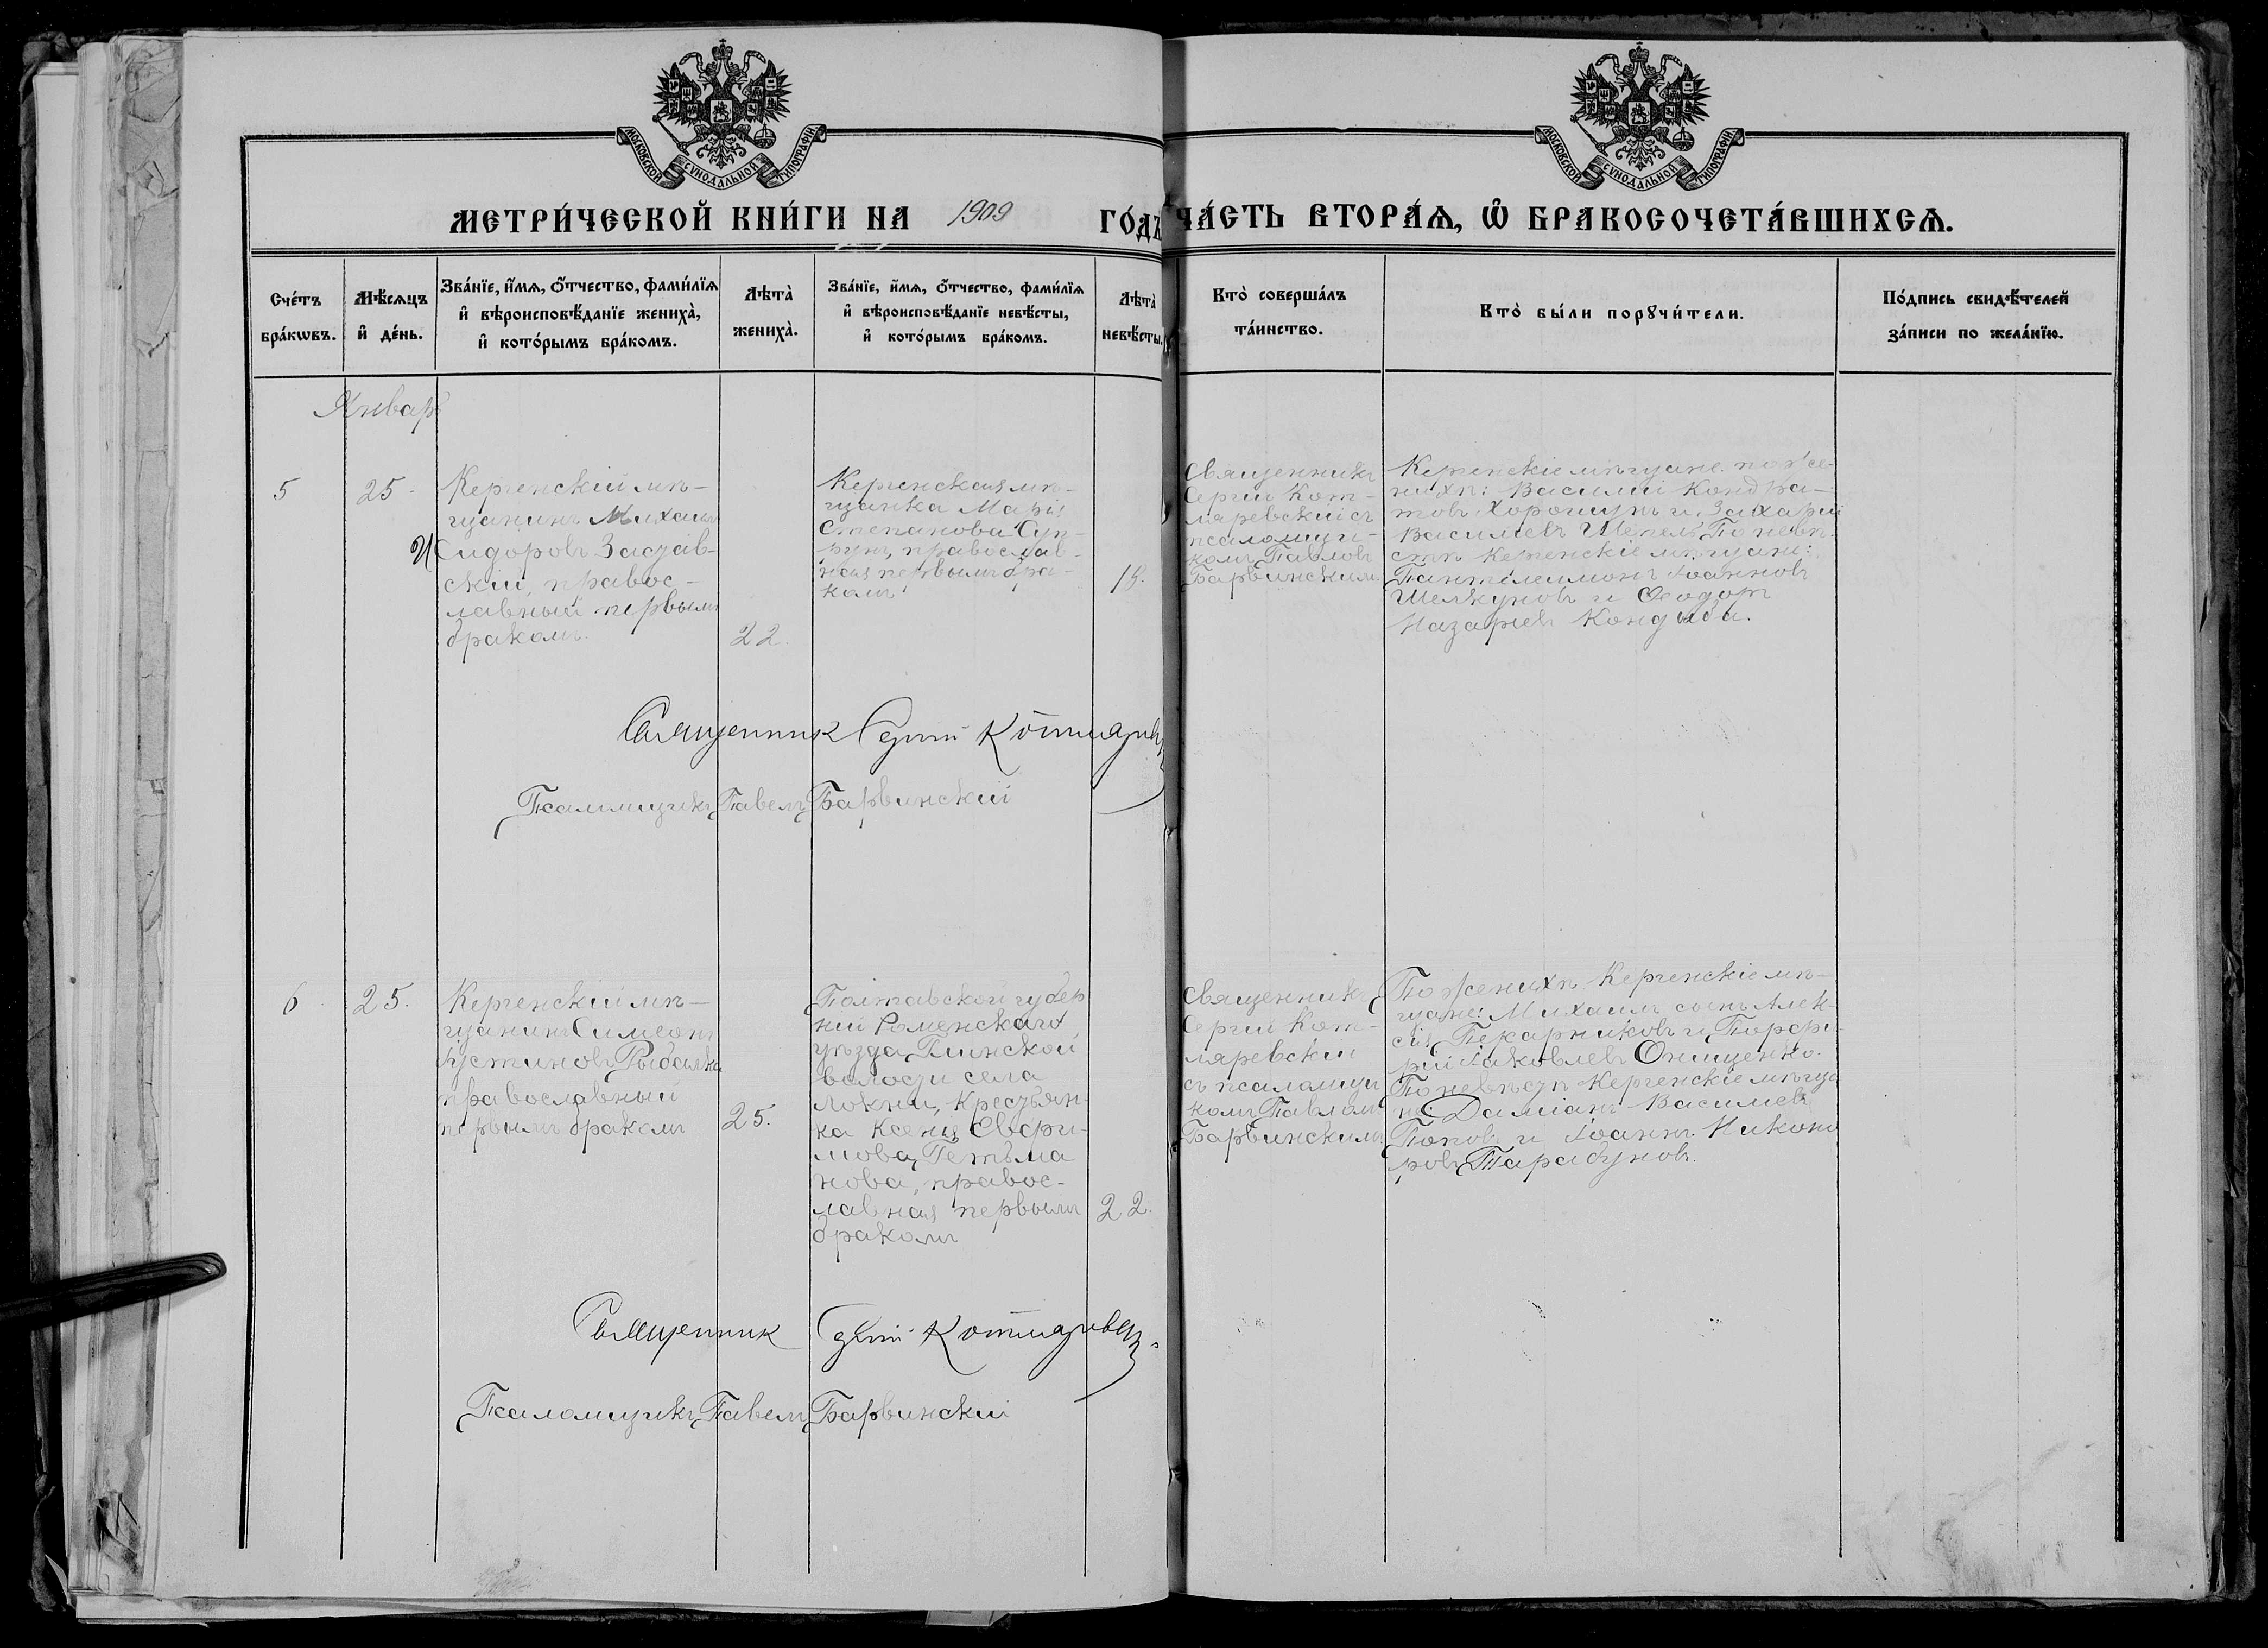 МОСКОВСКОЙ СѴНОДАЛЬНОЙ ТИПОГРАФІИ
МОСКОВСКОЙ СѴНОДАЛЬНОЙ ТИПОГРАФІИ
МЕТРИ́ЧЕСКОЙ КНИ́ГИ НА 1909 ГО́ДЪ
ЧА́СТЬ ВТОРА́Ѧ, Ѽ БРАКОСОЧЕТА́ВШИХСѦ.
Сче́тъ
бра́кѡвъ.
Мѣ́сѧцъ
и҆ де́нь.
Зва́нїе, и҆́мѧ, ѻ҆́тчество, фами́лїѧ
и҆ вѣроисповѣ́данїе жениха̀,
и҆ кото́рымъ бра́комъ.
Лѣта̀
жениха̀.
Зва́нїе, и҆́мѧ, ѻ҆́тчество, фами́лїѧ
и҆ вѣроисповѣ́данїе невѣ́сты,
и҆ кото́рымъ бра́комъ.
Лѣта̀
невѣ́сты.
Кто̀ соверша́лъ
та́инство.
Кто̀ бы́ли порꙋчи́тели.
По́дпись свидѣ́телей
за́писи по жела́нїю.
Январь
5
25.
Керченскій мѣ-
щанинъ Михаилъ
Сидоровъ Застав-
скій, правос-
лавный первымъ
бракомъ.
22.
Керченская мѣ-
щанка Марія
Степанова Суп-
рунъ, православ-
ная первымъ бра-
комъ
Священникъ
Сергій Кот-
ляревскій съ
псаломщи-
комъ Павломъ
Барвинскимъ
Керченскіе мѣщане по же-
нихѣ: Василій Кондра-
товъ Хорошунъ и Захарій
Василіевъ Шепель По невѣ-
стѣ Керченскіе мѣщане:
Пантелеимонъ Іоанновъ
Шелкуновъ и Ѳеодоръ
Назаріевъ Кондыба.
Священникъ Сергій Котляревскій
Псаломщикъ Павелъ Барвинскій
6
25.
Керченскій мѣ-
щанинъ Симеонъ
Іустиновъ Рыбалка
православный
первымъ бракомъ
25.
Полтавской губер
ніи Роменскаго
уѣзда Глинской
волости села
Локни, крестьян-
ка Ксенія Евфи-
мова Гетьма
нова, правос-
лавная первымъ
бракомъ
22.
Священникъ
Сергій Кот-
ляревскій
съ псаломщи
комъ Павломъ
Барвинскимъ
По женихѣ Керченскіе мѣ-
щане: Михаилъ сынъ Алек-
сія Пекарниковъ и Порфи-
рій Іаковлевъ Онищенко.
По невѣстѣ Керченскіе мѣща
не: Даміанъ Василіевъ
Поповъ и Іоаннъ Никано
ровъ Тарабуновъ.
Священникъ Сергій Котляревскій
Псаломщикъ Павелъ Барвинскій